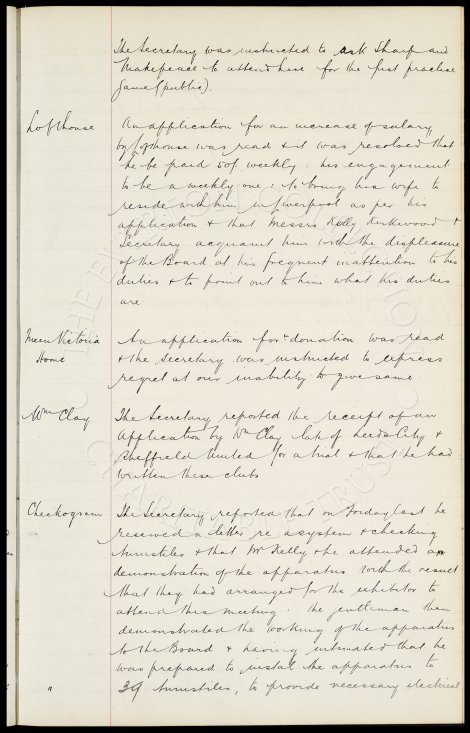 The Secretary was instructed to ask Sharp and
Makepeace to attend here for the first practise
Game (public).
Lofthouse
An application for an increase of salary
by Lofthouse was read & it was resolved that
he be paid 50/ weekly: his engagement
to be a weekly one: to bring his wife to
reside with him in Liverpool as per his
application & that Messrs Kelly Kirkwood &
Secretary acquaint him with the displeasure
of the Board at his frequent inattention to his
duties & to point out to him what his duties
are
Victoria
Home
An application for a donation was read
& the Secretary was instructed to express
regret at our inability to give same
Wm Clay
The Secretary reported the receipt of an
Application by Wm Clay late of Leeds City &
Sheffield United for a trial & that he had
written these clubs
Checkogram
The Secretary reported that on Friday last he
received a letter re a system & checking
turnstiles & that Mr Kelly & he attended a
demonstration of the apparatus with the result
that they had arranged for the exhibitor to
attend this meeting. The gentleman then
demonstrated the working of the apparatus
to the Board & having intimated that he
was prepared to install the apparatus to
" 39 turnstiles, to provide necessary electrical
THE EVERTON
CHARITABLE TRUST